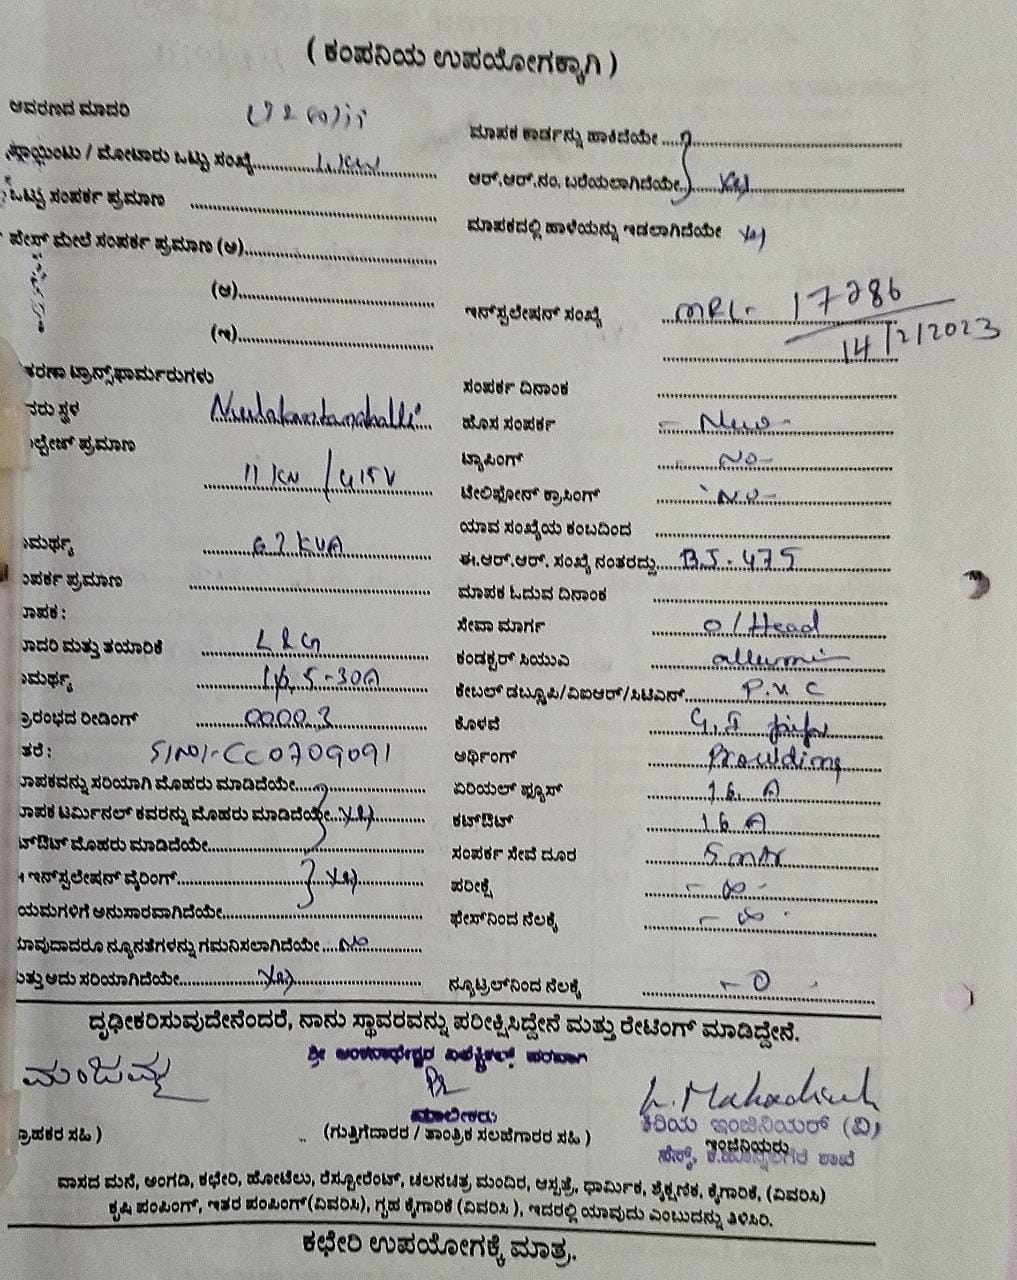 ( ಕಂಪನಿಯ ಉಪಯೋಗಕ್ಕಾಗಿ )
ಆವರಣದ ಮಾದರಿ
ಮಾಪಕ ಕಾರ್ಡನ್ನು ಹಾಕಿದೆಯೇ ....
ಪ್ಲಾಯಿಂಟು / ಮೋಟಾರು ಒಟ್ಟು ಸಂಖ್ಯೆ.... 1.KW
ಆರ್.ಆರ್.ನಂ. ಬರೆಯಲಾಗಿದೆಯೇ.... Yes
ಒಟ್ಟು ಸಂಪರ್ಕ ಪ್ರಮಾಣ ....
ಮಾಪಕದಲ್ಲಿ ಹಾಳೆಯನ್ನು ಇಡಲಾಗಿದೆಯೇ Yes
ಪೇಸ್ ಮೇಲೆ ಸಂಪರ್ಕ ಪ್ರಮಾಣ (ಅ)....
(ಆ)....
(ಇ)....
ಇನ್‌ಸ್ಟಲೇಷನ್ ಸಂಖ್ಯೆ MRL- 17286
14/2/2023
ಕರಣಾ ಟ್ರಾನ್ಸ್‌ಫಾರ್ಮರುಗಳು
ಸಂಪರ್ಕ ದಿನಾಂಕ ....
ನರು ಸ್ಥಳ Neelakantanahalli
ಹೊಸ ಸಂಪರ್ಕ - New -
ಲ್ಟೇಜ್ ಪ್ರಮಾಣ 11 KV / 415V
ಟ್ಯಾಪಿಂಗ್ - NO -
ಟೆಲಿಫೋನ್ ಕ್ರಾಸಿಂಗ್ - NO -
ಯಾವ ಸಂಖ್ಯೆಯ ಕಂಬದಿಂದ ....
ಮರ್ಥ್ಯ 63 KVA
ಈ.ಆರ್.ಆರ್. ಸಂಖ್ಯೆ ನಂತರದ್ದು.... BJ-475
ಂಪರ್ಕ ಪ್ರಮಾಣ ....
ಮಾಪಕ ಓದುವ ದಿನಾಂಕ ....
ಾಪಕ :
ಸೇವಾ ಮಾರ್ಗ O/Head
ಾದರಿ ಮತ್ತು ತಯಾರಿಕೆ L&G
ಕಂಡಕ್ಟರ್ ಸಿಯುಎ
ಮರ್ಥ್ಯ 1ϕ, 5-30A
ಕೇಬಲ್ ಡಬ್ಲೂಪಿ/ವಿಐಆರ್/ಸಿಟಿಎಸ್.... P.V.C
ಪ್ರಾರಂಭದ ರೀಡಿಂಗ್ 0000.3
ಕೊಳವೆ G.I pipe
ತರೆ : S/NO/-CC0709091
ಅರ್ಥಿಂಗ್ Providing
ಾಪಕವನ್ನು ಸರಿಯಾಗಿ ಮೊಹರು ಮಾಡಿದೆಯೇ....
ಏರಿಯಲ್ ಫ್ಯೂಸ್ 16 A
ಾಪಕ ಟರ್ಮಿನಲ್ ಕವರನ್ನು ಮೊಹರು ಮಾಡಿದೆಯೇ.... Yes
ಕಟ್‌ಔಟ್ 16 A
ಟ್‌ಔಟ್ ಮೊಹರು ಮಾಡಿದೆಯೇ....
ಸಂಪರ್ಕ ಸೇವೆ ದೂರ 5 mtr
ಇನ್‌ಸ್ಟಲೇಷನ್ ವೈರಿಂಗ್.... Yes
ಪರೀಕ್ಷೆ - ∞ -
ಯಮಗಳಿಗೆ ಅನುಸಾರವಾಗಿದೆಯೇ....
ಫೇಸ್‌ನಿಂದ ನೆಲಕ್ಕೆ - ∞ -
ಾವುದಾದರೂ ನ್ಯೂನತೆಗಳನ್ನು ಗಮನಿಸಲಾಗಿದೆಯೇ.... NO
ುತ್ತು ಅದು ಸರಿಯಾಗಿದೆಯೇ.... Yes
ನ್ಯೂಟ್ರಲ್‌ನಿಂದ ನೆಲಕ್ಕೆ - 0 -
ದೃಢೀಕರಿಸುವುದೇನೆಂದರೆ, ನಾನು ಸ್ಥಾವರವನ್ನು ಪರೀಕ್ಷಿಸಿದ್ದೇನೆ ಮತ್ತು ರೇಟಿಂಗ್ ಮಾಡಿದ್ದೇನೆ.
ಶ್ರೀ ಅಂಕನಾಥೇಶ್ವರ ಎಲೆಕ್ಟ್ರಿಕಲ್ಸ್ ಪರವಾಗಿ
ಮಂಜಮ್ಮ
ಮಾಲೀಕರು
L. Mahadevh
ಕಿರಿಯ ಇಂಜಿನಿಯರ್ (ವಿ)
ಗ್ರಾಹಕರ ಸಹಿ )
(ಗುತ್ತಿಗೆದಾರರ / ತಾಂತ್ರಿಕ ಸಲಹೆಗಾರರ ಸಹಿ )
ಇಂಜಿನಿಯರು
ಶಾಖೆ
ವಾಸದ ಮನೆ, ಅಂಗಡಿ, ಕಛೇರಿ, ಹೋಟೆಲು, ರೆಸ್ಟೋರೆಂಟ್, ಚಲನಚಿತ್ರ ಮಂದಿರ, ಆಸ್ಪತ್ರೆ, ಧಾರ್ಮಿಕ, ಶೈಕ್ಷಣಿಕ, ಕೈಗಾರಿಕೆ, (ವಿವರಿಸಿ)
ಕೃಷಿ ಪಂಪಿಂಗ್, ಇತರ ಪಂಪಿಂಗ್(ವಿವರಿಸಿ), ಗೃಹ ಕೈಗಾರಿಕೆ (ವಿವರಿಸಿ ), ಇದರಲ್ಲಿ ಯಾವುದು ಎಂಬುದನ್ನು ತಿಳಿಸಿರಿ.
ಕಛೇರಿ ಉಪಯೋಗಕ್ಕೆ ಮಾತ್ರ.